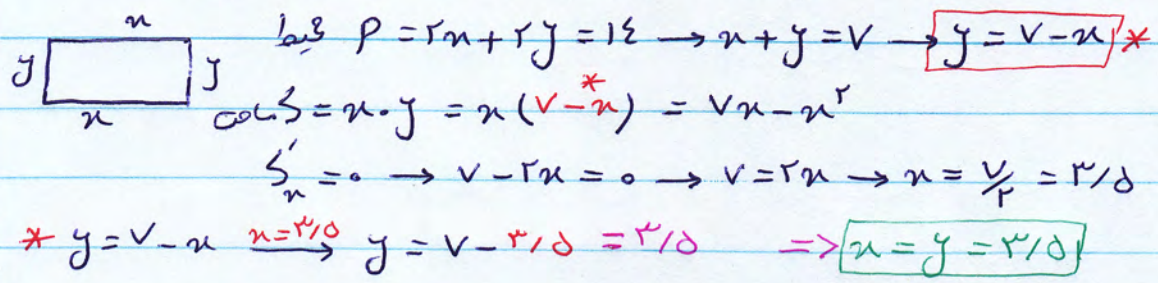 x
y y
x
محیط P = ۲x + ۲y = ۱۴ → x + y = ۷ → y = ۷ - x *
مساحت S = x · y = x (۷ - x) * = ۷x - x^۲
S'x = ۰ → ۷ - ۲x = ۰ → ۷ = ۲x → x = ۷/۲ = ۳/۵
* y = ۷ - x x=۳/۵ → y = ۷ - ۳/۵ = ۳/۵ => x = y = ۳/۵